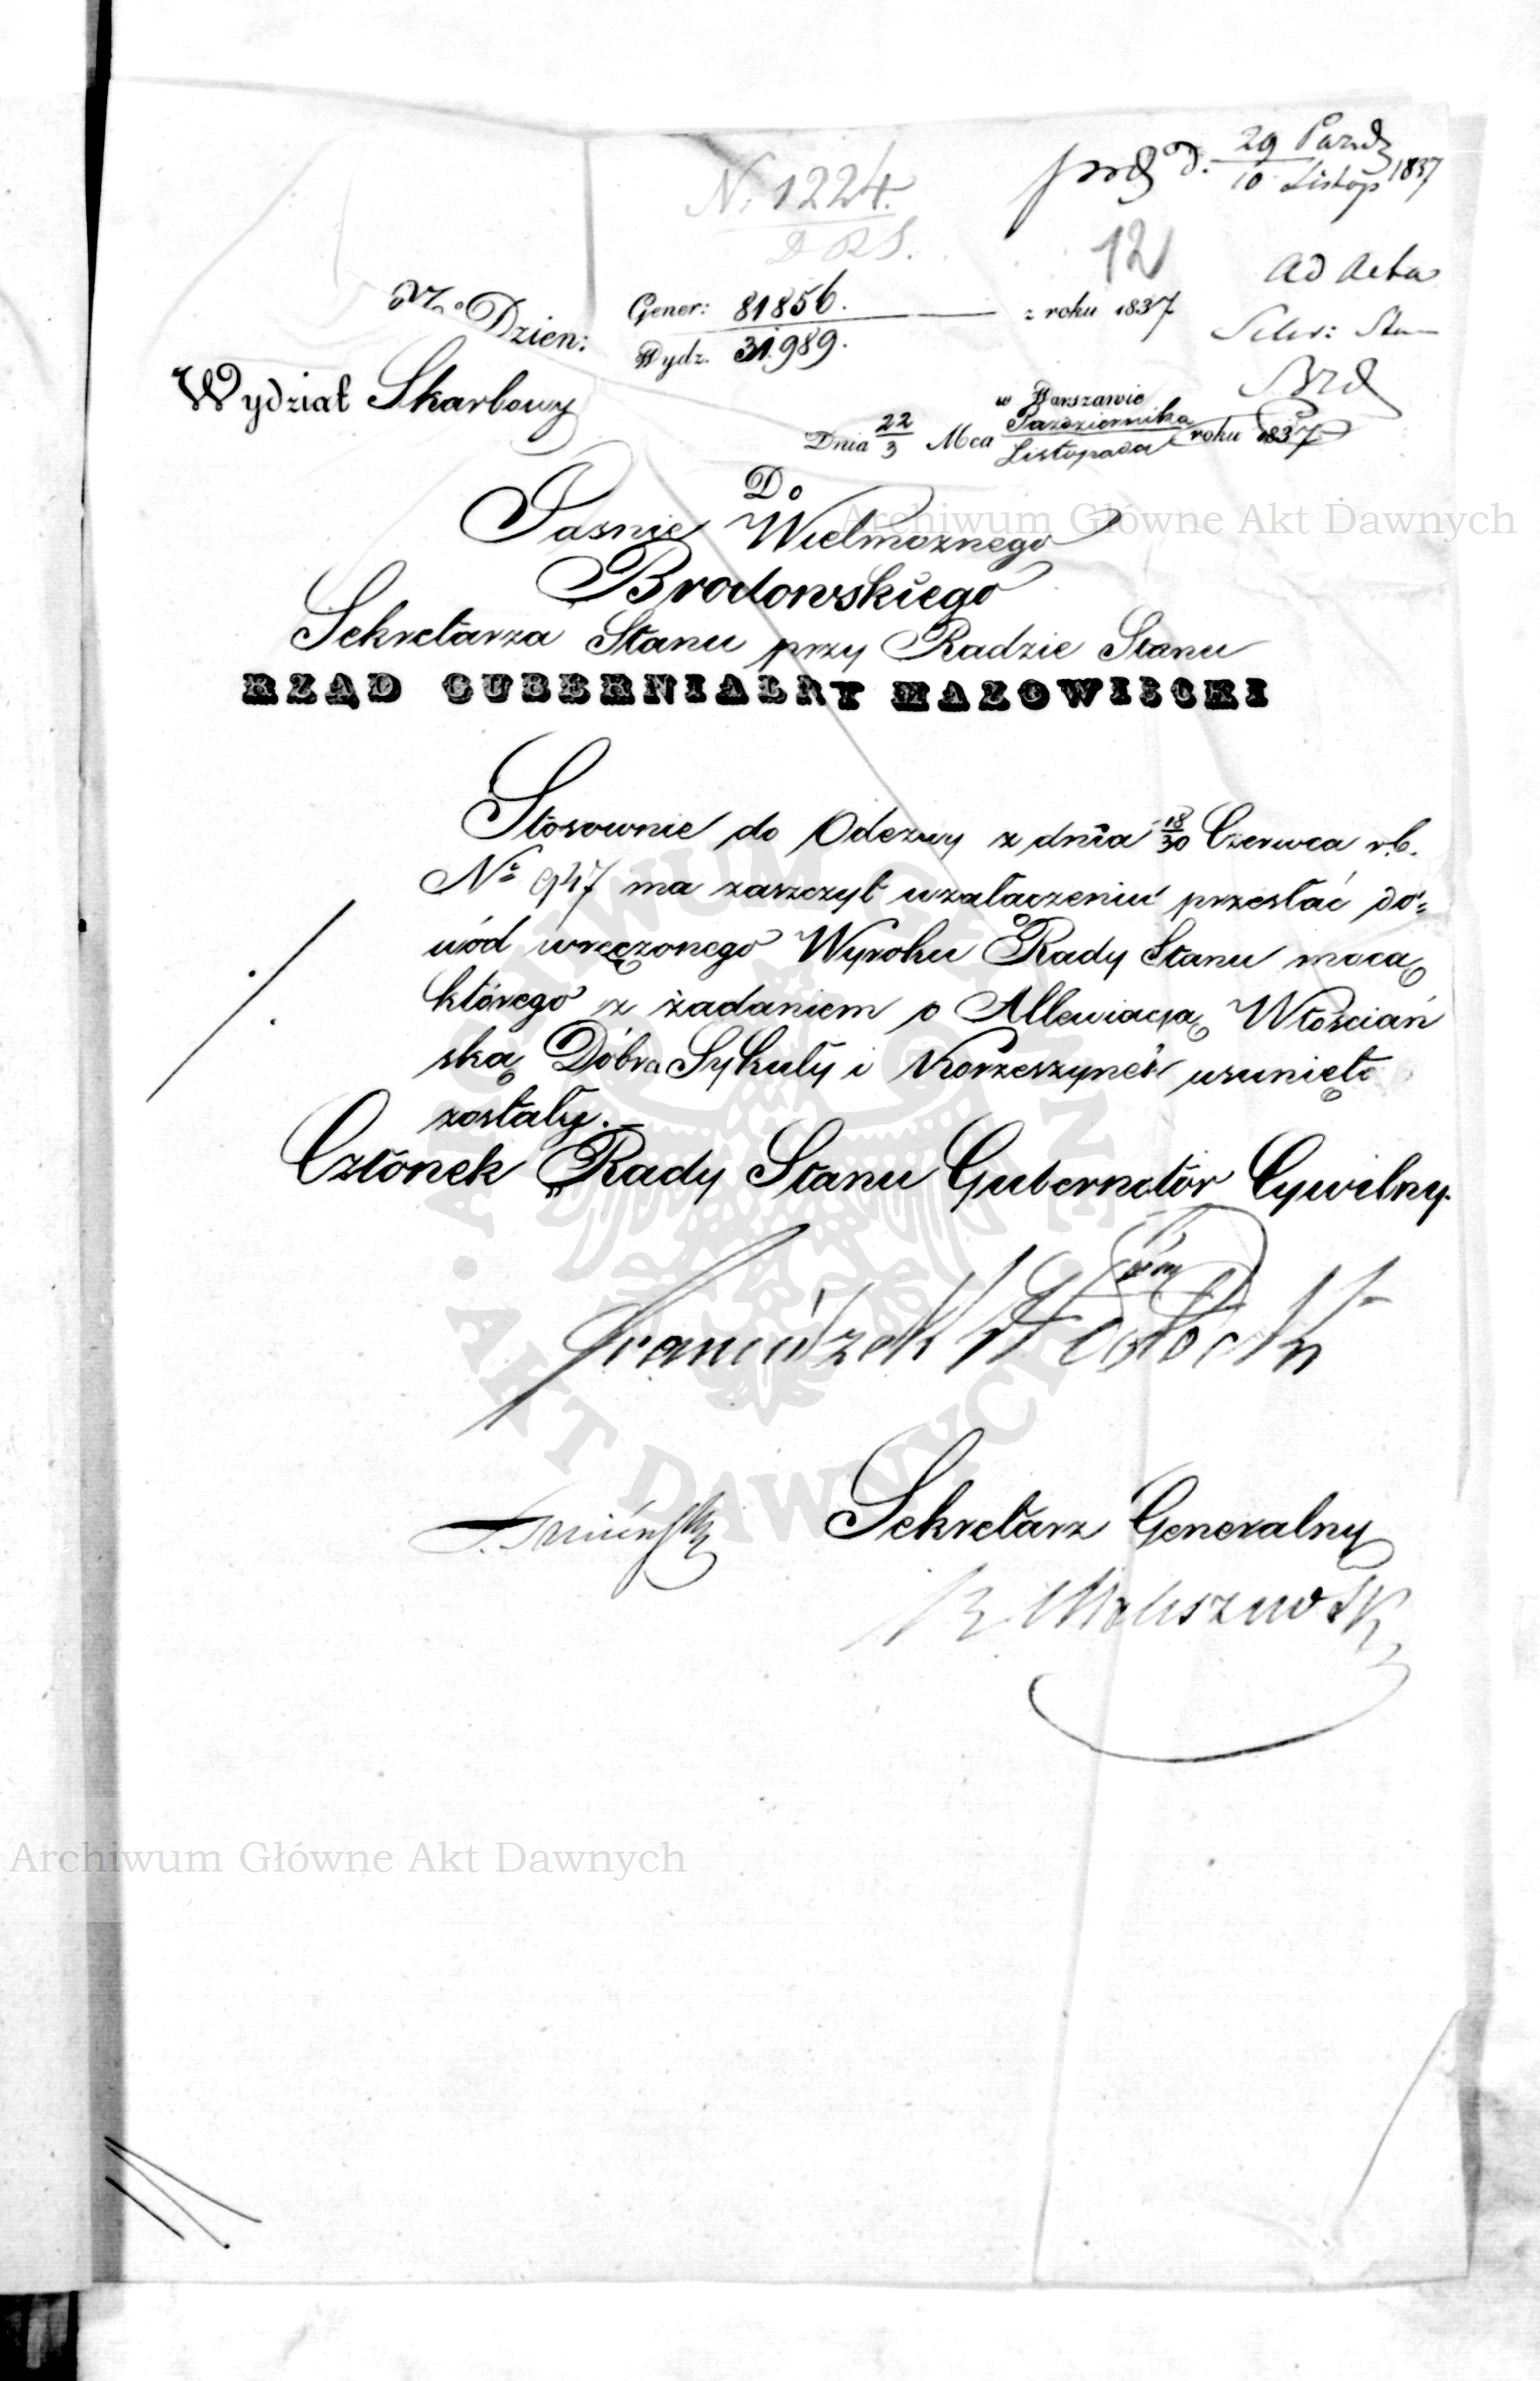 N. 1224.
D R S.
d. 29 Paźdz
10 Listop 1837
12
Ad Acta
Sekr: Stan
Brd
No Dzien:
Gener: 81856.
Wydz. 31.989.
z roku 1837
Wydział Skarbowy
w Warszawie
Dnia 22/3 Mca Października/Listopada roku 1837.
Do
Jaśnie Wielmożnego
Brodowskiego
Sekretarza Stanu przy Radzie Stanu
RZĄD GUBERNIALNY MAZOWIECKI
Stosownie do Odezwy z dnia 18/30 Czerwca r.b.
No 947 ma zaszczyt w załączeniu przesłać do=
wód wręczonego Wyroku Rady Stanu mocą
którego z żądaniem o Allewiacyą Włościań
ską Dobra Sykuły i Korzeszynek usunięte
zostały.
Członek Rady Stanu Gubernator Cywilny.
Franciszek
Sekretarz Generalny
Archiwum Główne Akt Dawnych
Archiwum Główne Akt Dawnych
ARCHIWUM GŁÓWNE
AKT DAWNYCH